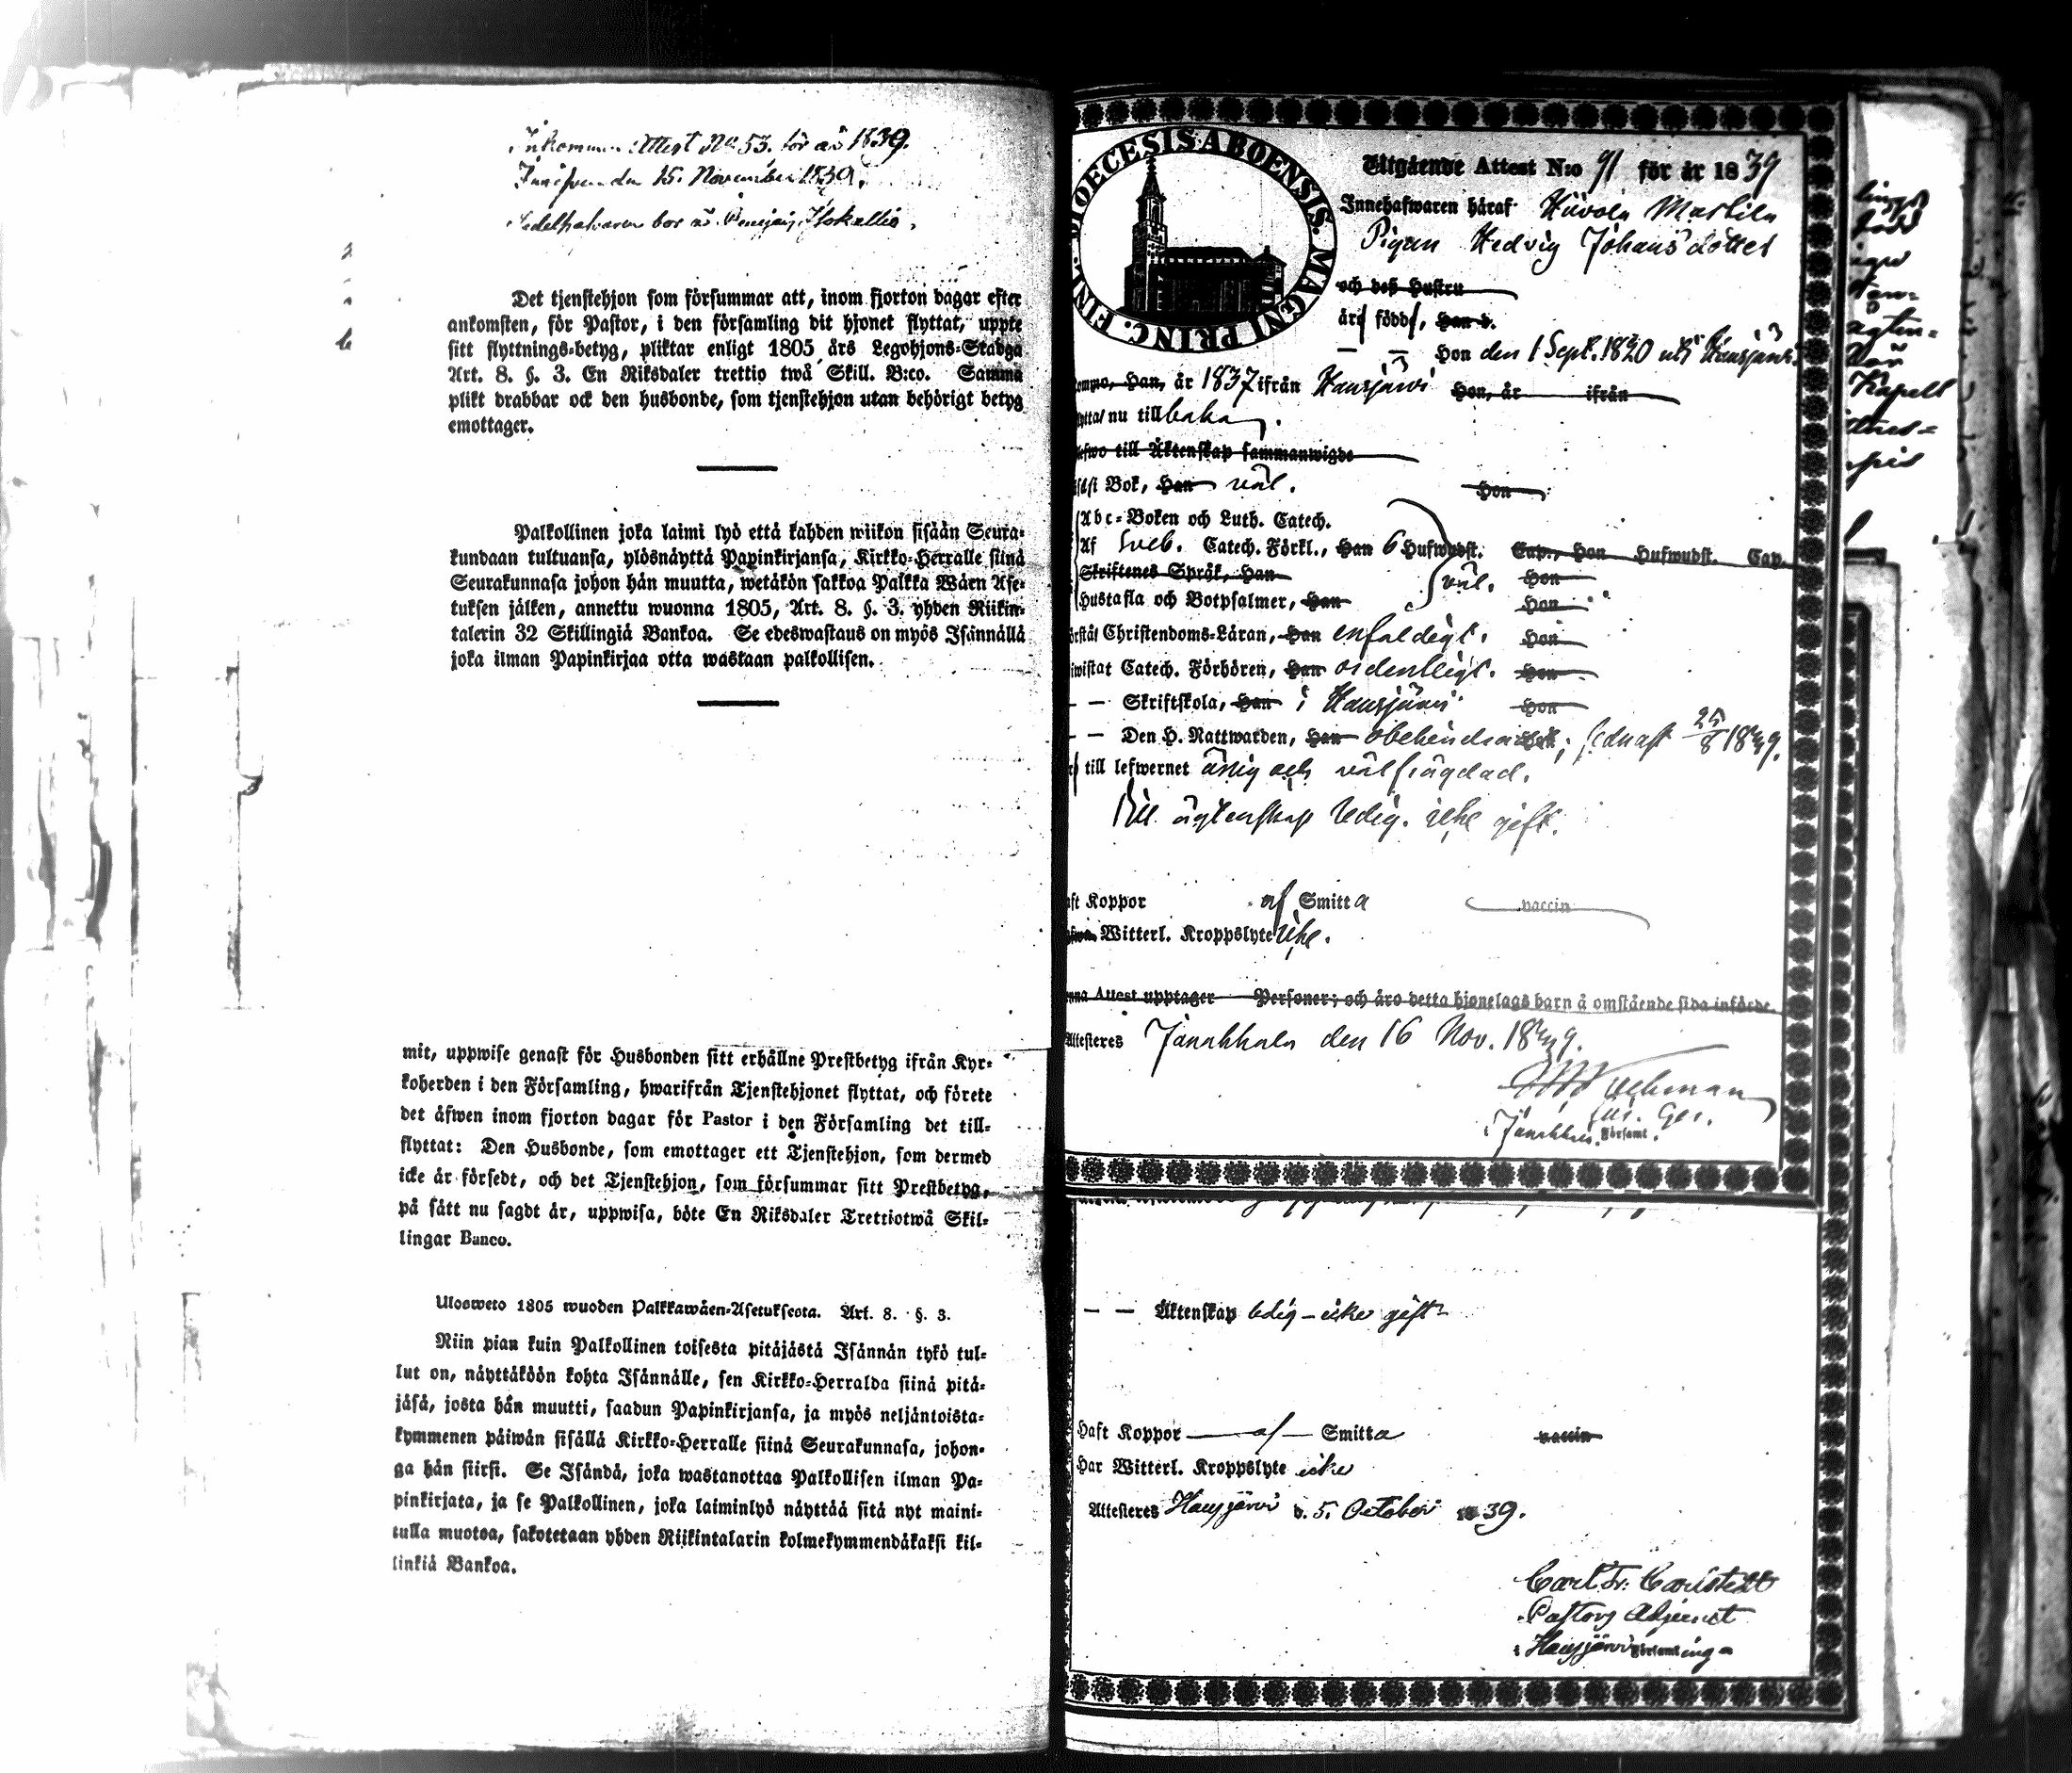 Inkommen Attest No 53. för år 1839.
den 15. November 1839.
Sedelhafvaren bor å Iso Kallio.
Det tjenstehjon som försummar att, inom fjorton dagar efter
ankomsten, för Pastor, i den församling dit hjonet flyttat, uppte
sitt flyttnings-betyg, pliktar enligt 1805 års Legohjons-Stadga
Art. 8. §. 3. En Riksdaler trettio twå Skill. B:co. Samma
plikt drabbar ock den husbonde, som tjenstehjon utan behörigt betyg
emottager.
Palkollinen joka laimi lyö että kahden wiikon sisään Seura-
kundaan tultuansa, ylösnäyttä Papinkirjansa, Kirkko-Herralle siinä
Seurakunnasa johon hän muutta, wetäkön sakkoa Palkka Wäen Ase-
tuksen jälken, annettu wuonna 1805, Art. 8. §. 3. yhden Riikin-
talerin 32 Skillingiä Bankoa. Se edeswastaus on myös Isännällä
joka ilman Papinkirjaa otta wastaan palkollisen.
mit, uppwise genast för Husbonden sitt erhållne Prestbetyg ifrån Kyr-
koherden i den Församling, hwarifrån Tjenstehjonet flyttat, och förete
det äfwen inom fjorton dagar för Pastor i den Församling det till-
flyttat: Den Husbonde, som emottager ett Tjenstehjon, som dermed
icke är försedt, och det Tjenstehjon, som försummar sitt Prestbetyg,
på sätt nu sagdt är, uppwisa, böte En Riksdaler Trettiotwå Skil-
lingar Banco.
Ulosweto 1805 wuoden Palkkawäen-Asetuksesta. Art. 8. §. 3.
Niin pian kuin Palkollinen toisesta pitäjästä Isännän tykö tul-
lut on, näyttäköön kohta Isännälle, sen Kirkko-Herralda siinä pitä-
jäsä, josta hän muutti, saadun Papinkirjansa, ja myös neljäntoista-
kymmenen päiwän sisällä Kirkko-Herralle siinä Seurakunnasa, johon-
ga hän siirsi. Se Isändä, joka wastanottaa Palkollisen ilman Pa-
pinkirjata, ja se Palkollinen, joka laiminlyö näyttää sitä nyt maini-
tulla muotoa, sakotetaan yhden Riikintalarin kolmekymmendäkaksi kil-
linkiä Bankoa.
DIOECESIS ABOENSIS. MAGNI PRINC. FINL.
Utgående Attest N:o 91 för år 1839
Innehafwaren häraf Hüvola Markila
Pigan Hedvig Johans dotter
och deß Hustru
äro född, Han d.
— — Hon den 1 Sept. 1820 uti Hausjärvi.
Han, år 1837 ifrån Hausjärvi Hon, år ifrån
nu tillbaka.
till Äktenskap sammanwigde
Bok, Han väl. Hon
Abc-Boken och Luth. Catech.
Af Sveb. Catech. Förkl., Han 6 Hufwudst. Cap., Hon Hufwudst. Cap.
Skriftenes Språk, Han väl. Hon
Hustafla och Botpsalmer, Han Hon
Christendoms-Läran, Han enfaldigt. Hon
Catech. Förhören, Han ordentligt. Hon
— — Skriftskola, Han i Hausjärvi Hon
— — Den H. Nattwarden, Han obehindrad Hon; sednast 25/8 1839.
till lefwernet ärlig och välfrägdad.
Till ägtenskap ledig. icke gift.
Koppor af Smitta vaccin
Witterl. Kroppslyte icke.
Attest upptager Personer; och äro detta hjonelags barn å omstående sida införde.
Attesteras Janakkala den 16 Nov. 1839.
i Janakkala Församl.
— — Äktenskap ledig – icke gift
Haft Koppor — af — Smitta vaccin
Har Witterl. Kroppslyte icke
Attesteras Hausjärvi d. 5. October 1839.
Carl Fr: Carlstedt
Pastors Adjunct
i Hausjärvi Församling